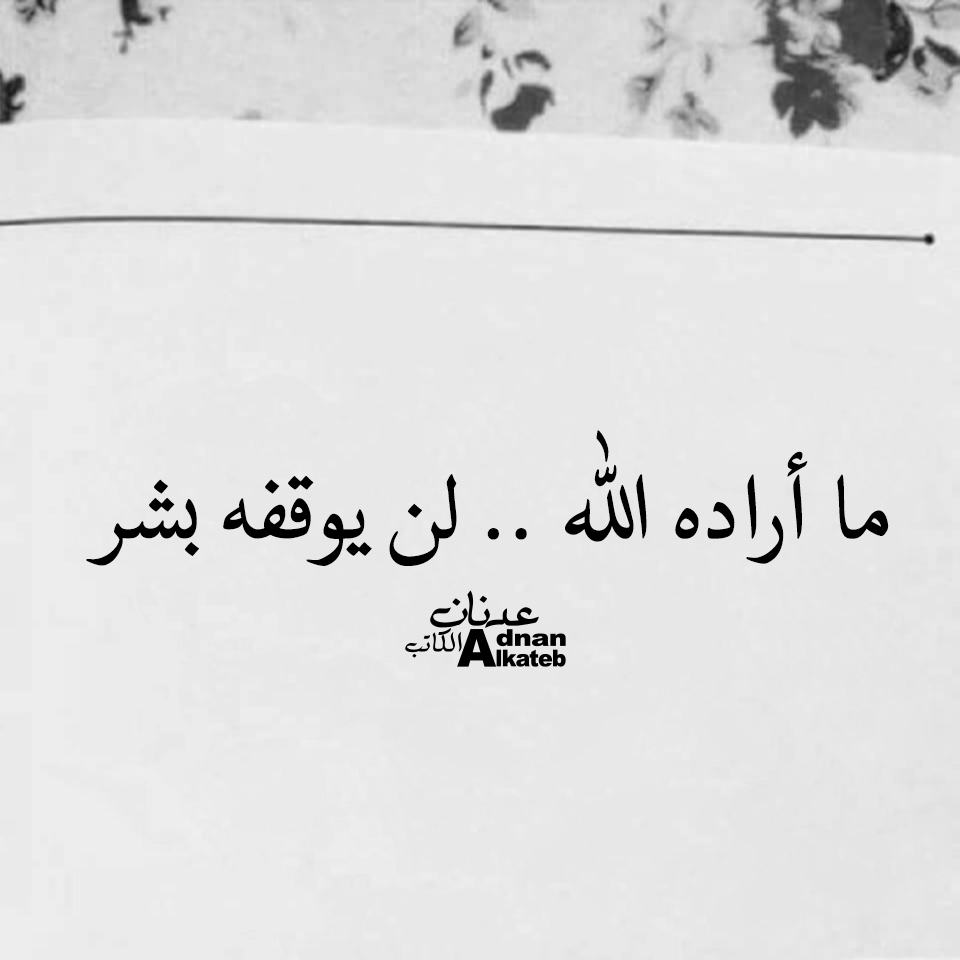 ما أراده الله .. لن يوقفه بشر
عدنان
الكاتب Adnan
Alkateb